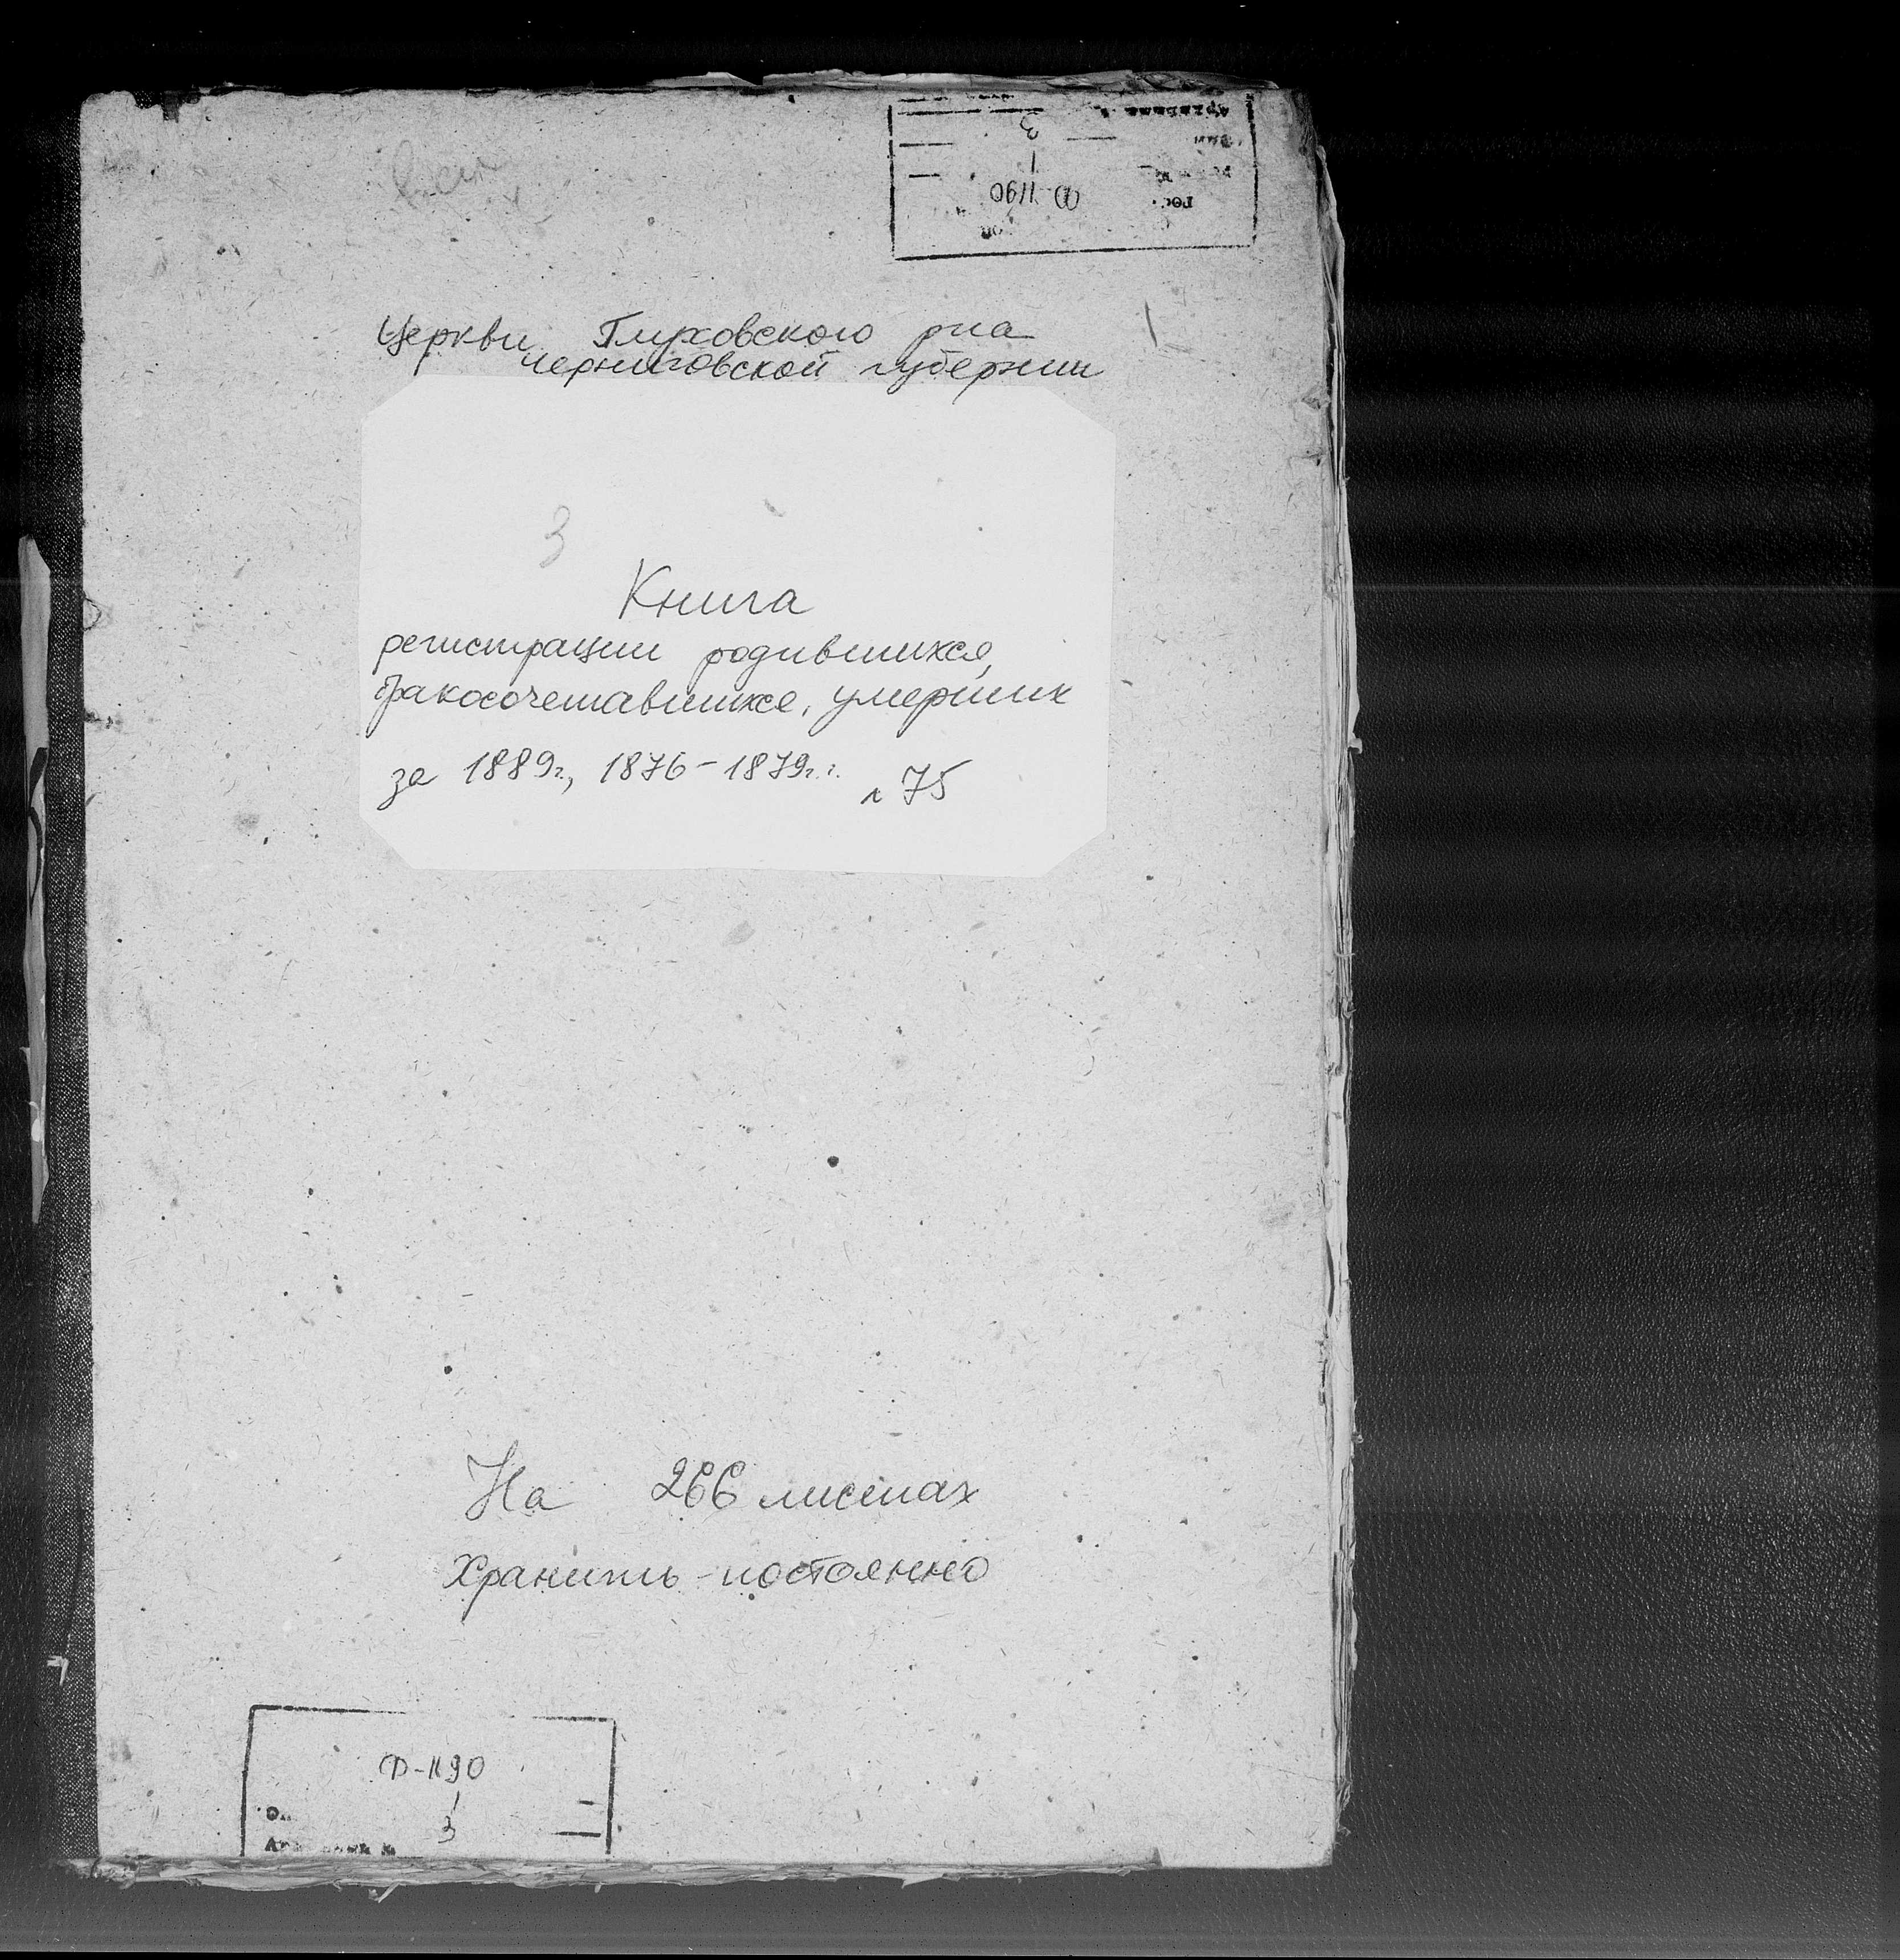 Ф-1190
1
3
Церкви Глуховского р-на
Черниговской губернии
3
Книга
регистрации родившихся,
бракосочетавшихся, умерших
за 1889г., 1876-1879г.г. л 75
На 266 листах
Хранить - постоянно
Ф-1190
1
3